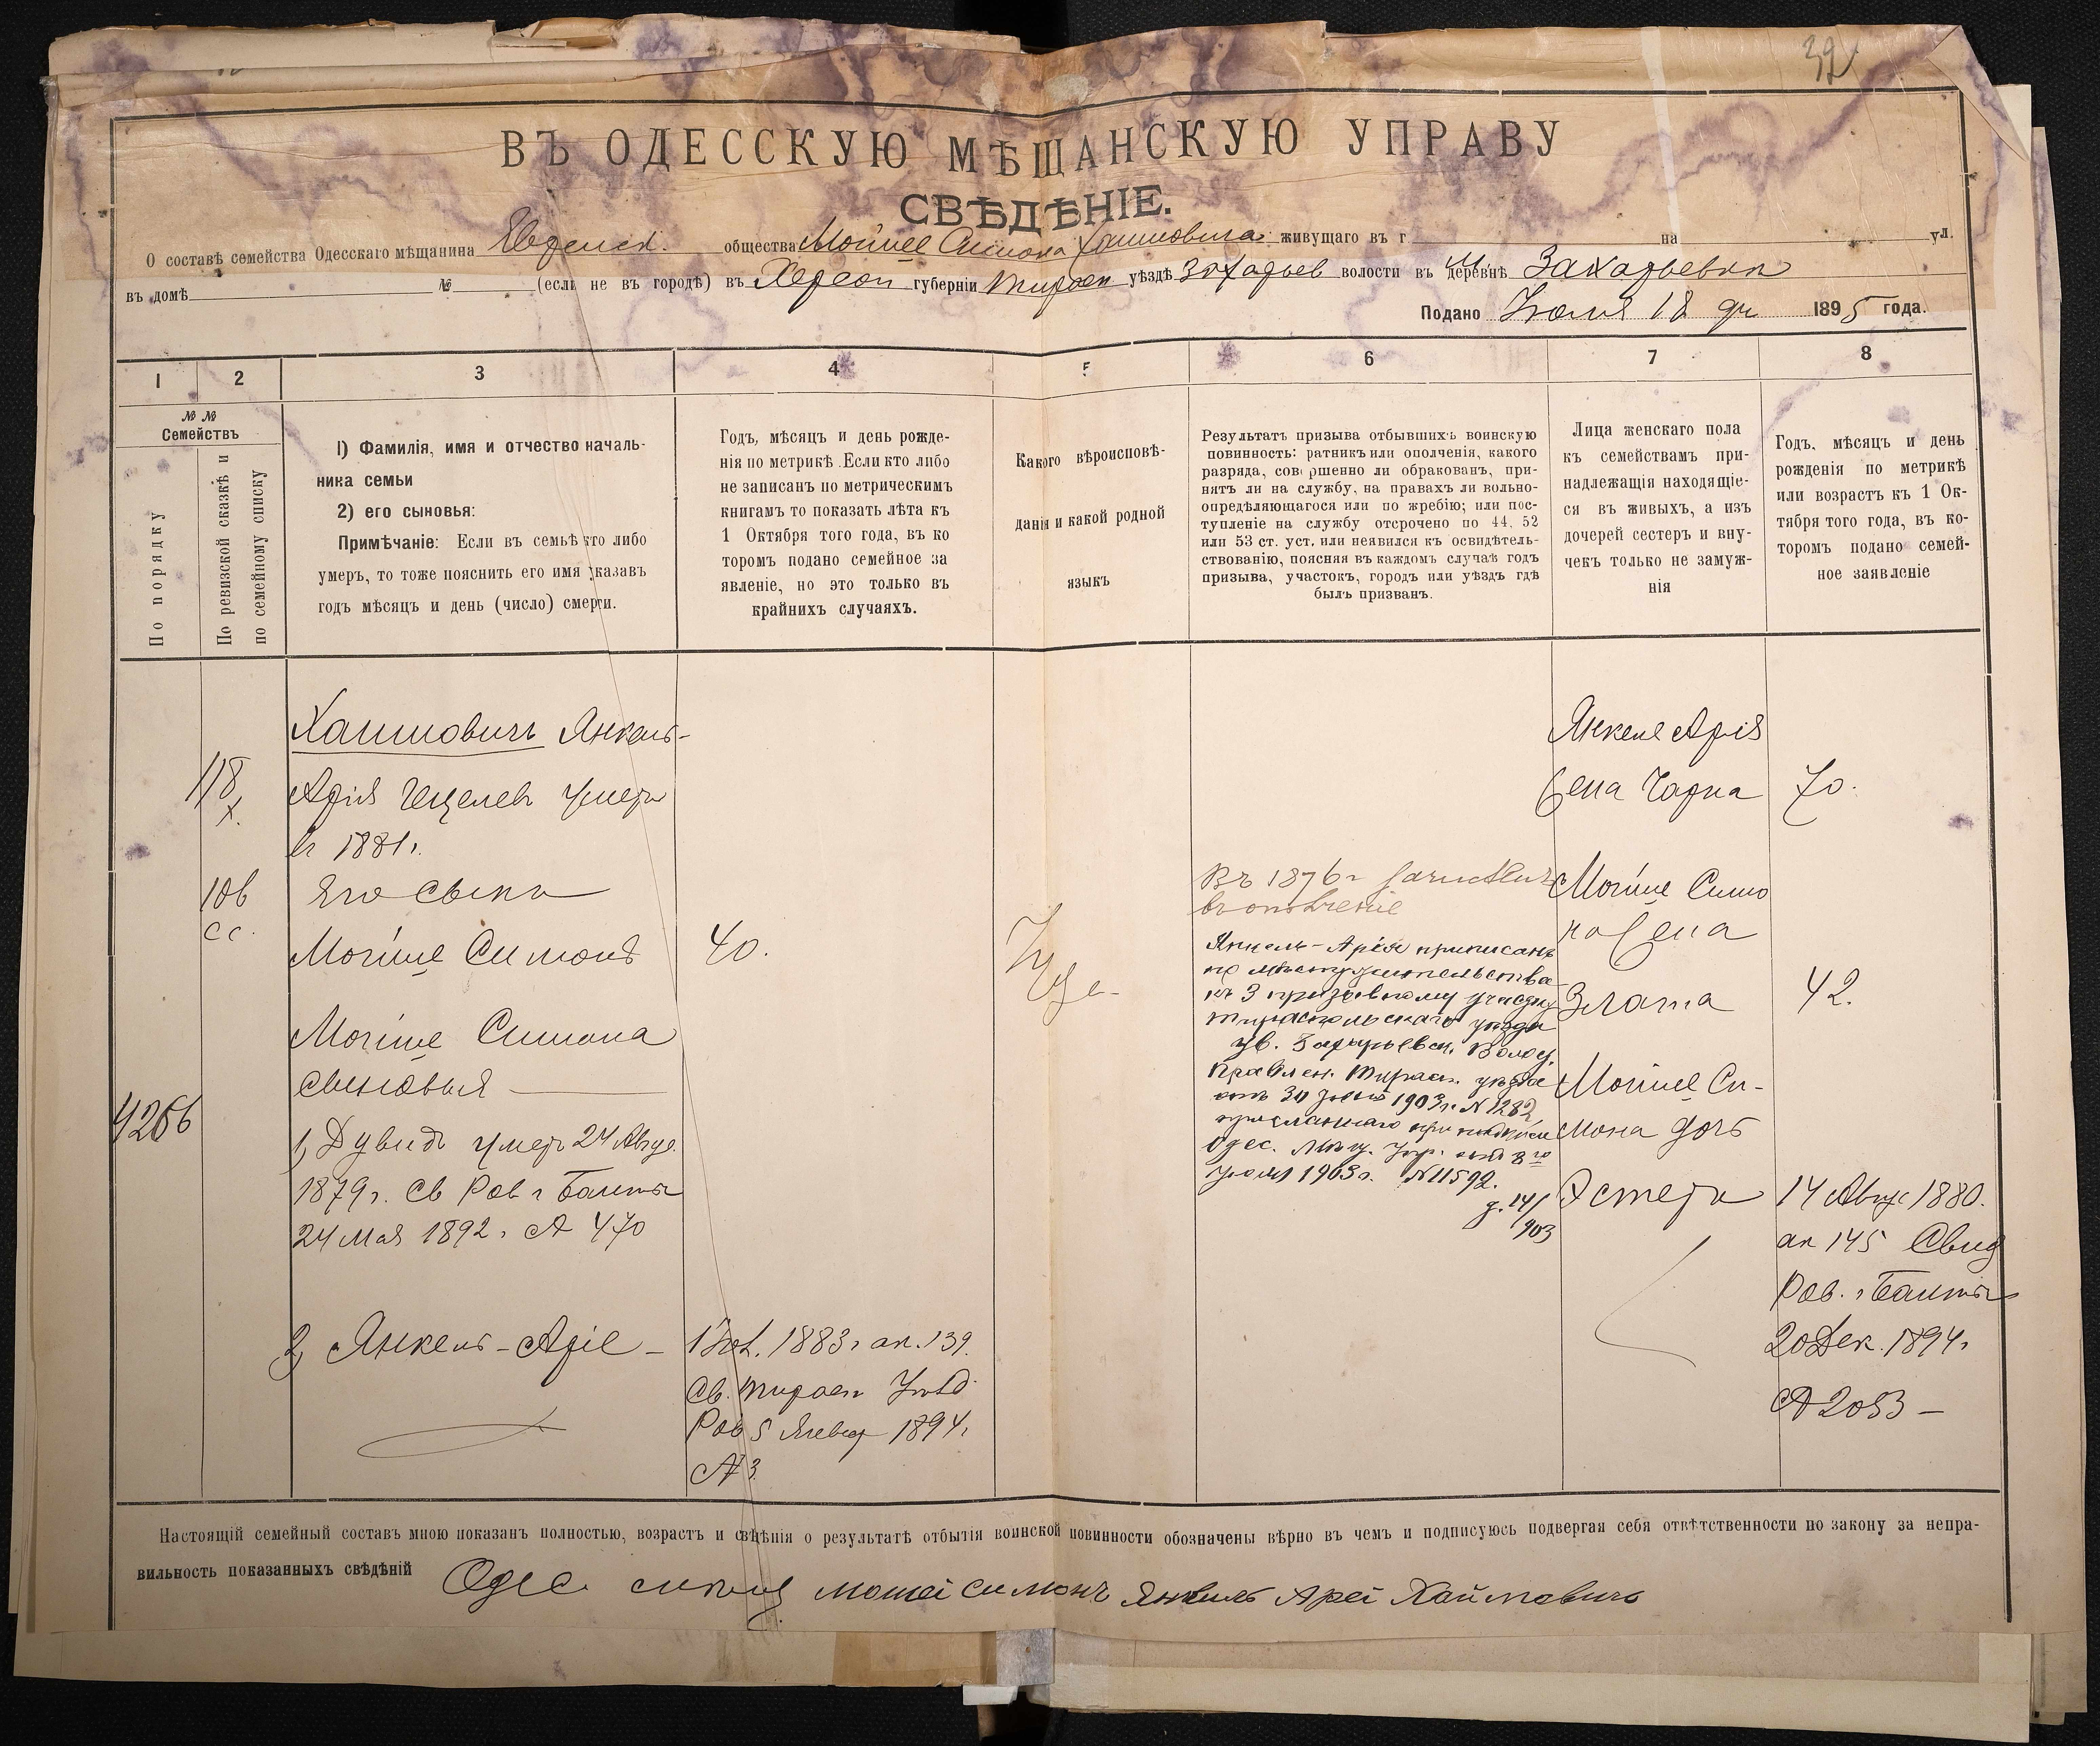 32
ВЪ ОДЕССКУЮ МѢЩАНСКУЮ УПРАВУ
СВѢДѢНІЕ.
О составѣ семейства Одесскаго мѣщанина Еврейск. общества Мойше Симона Хаимовича живущаго въ г на ул.
въ домѣ № (если не въ городѣ) въ Херсон губерніи Тирасп уѣздѣ Захарьев волости въ м. деревнѣ Захарьевки
Подано Июля 18 дн 1895 года.
1 2 3 4 5 6 7 8
№ №
Семействъ
По порядку
По ревизской сказкѣ и
по семейному списку
1) Фамилія, имя и отчество началь-
ника семьи
2) его сыновья:
Примѣчаніе: Если въ семьѣ кто либо
умеръ, то тоже пояснить его имя указавъ
годъ мѣсяцъ и день (число) смерти.
Годъ, мѣсяцъ и день рожде-
нія по метрикѣ. Если кто либо
не записанъ по метрическимъ
книгамъ то показать лѣта къ
1 Октября того года, въ ко
торомъ подано семейное за
явленіе, но это только въ
крайнихъ случаяхъ.
Какого вѣроисповѣ-
данія и какой родной
языкъ
Результатъ призыва отбывшихъ воинскую
повинность: ратникъ или ополченія, какого
разряда, совершенно ли обракованъ, при-
нятъ ли на службу, на правахъ ли вольно-
опредѣляющагося или по жребію; или пос-
тупленіе на службу отсрочено по 44, 52
или 53 ст. уст. или неявился къ освидѣтель-
ствованію, поясняя въ каждомъ случаѣ годъ
призыва, участокъ, городъ или уѣздъ гдѣ
былъ призванъ.
Лица женскаго пола
къ семействамъ при-
надлежащія находящіе-
ся въ живыхъ, а изъ
дочерей сестеръ и вну-
чекъ только не замуж-
нія
Годъ, мѣсяцъ и день
рожденія по метрикѣ
или возрастъ къ 1 Ок-
тября того года, въ ко-
торомъ подано семей-
ное заявленіе
4266
118
х.
106
сс.
Хаимовичъ Янкель-
Арія Гецелевъ умеръ
въ 1881г.
Его сынъ
Мойше Симонъ
Мойше Симона
сыновья
1, Дувидъ умеръ 24 Авгус.
1879г. Св Рав г Балты
24 Мая 1892г. № 470
2, Янкель-Аріе -
40.
1883г ак. 139.
Св. Тирасп Уѣзд
Рав 5 Январ 1894г.
№ 3
Іуде-
Въ 1876г зачисленъ
въ ополченіе
Янкель-Арія приписанъ
по мѣсту жительства
къ 3 призывному участку
Тираспольскаго уѣзда
ув. Захарьевск. Волос.
Правлен. Тирасп. уѣзда
отъ 30 1903г. № 1282,
присланнаго при надписи
Одес. Мѣщ. Упр. отъ 8го
Іюля 1903г. № 11592.
д. 14/903
Янкеля Арія
жена Чарна
70.
Мойше Симо
на жена
Злата
42.
Мойше Си-
мона дочь
Эстеръ
14 Авгус 1880.
ак 145 Свид
Рав. г Балты
20 Дек. 1894г
№ 2053 -
Настоящій семейный составъ мною показанъ полностью, возрастъ и свѣдѣнія о результатѣ отбытія воинской повинности обозначены вѣрно въ чемъ и подписуюсь подвергая себя отвѣтственности по закону за непра-
вильность показанныхъ свѣдѣній Одес. мошей симонъ янкиль Арей Хаймовичъ